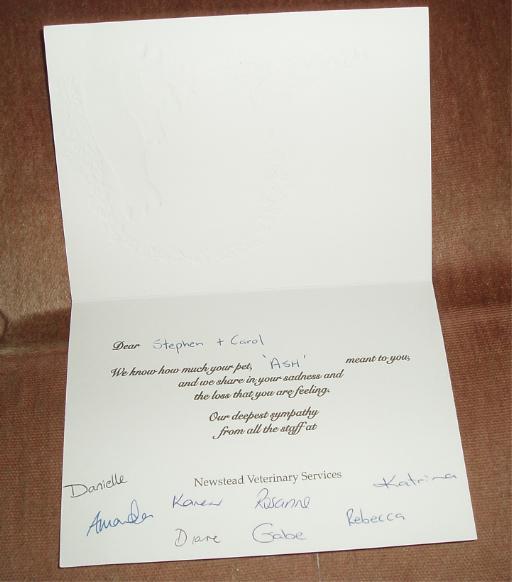 Dear Stephen + Carol
We know how much your pet, 'ASH' meant to you,
and we share in your sadness and
the loss that you are feeling.
Our deepest sympathy
from all the staff at
Newstead Veterinary Services
Danielle Karen Rosanne Katrina
Amanda Diane Gabe Rebecca